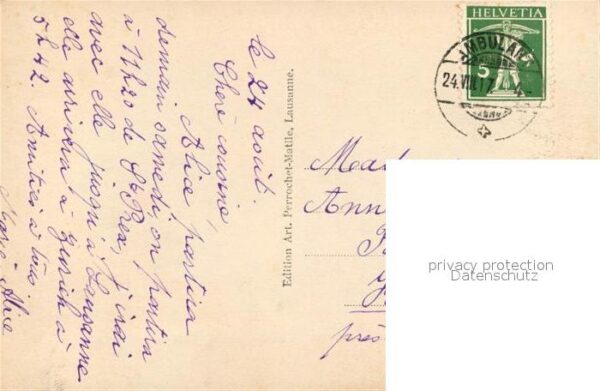 le 24 août.
Chère cousine,
Alice partira
demain samedi, on partira
à 11h20 de St Prex, j'irai
avec elle jusqu'à Lausanne
elle arrivera à Zurich à
5h42. Amitiés à tous
Alice
Edition Art. Perrochet-Matile, Lausanne.
HELVETIA
5
AMBULANT
24.VIII.17
Mad
Ann
près
privacy protection
Datenschutz